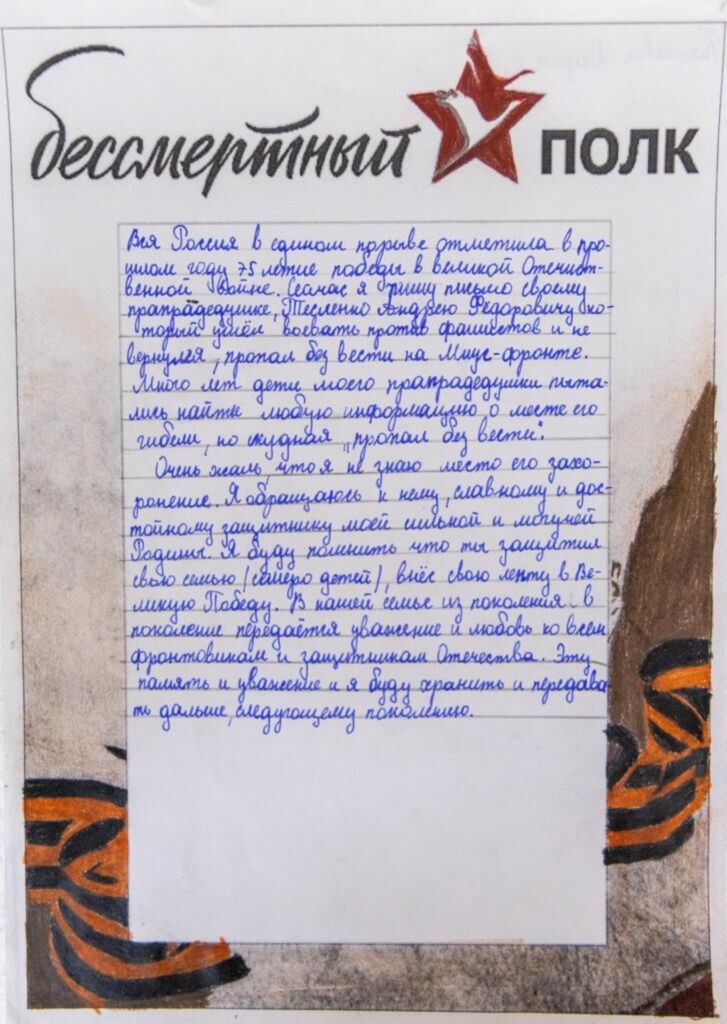 бессмертный ПОЛК
Вся Россия в едином порыве отметила в про-
шлом году 75 летие победы в великой Отечест-
венной войне. Сейчас я пишу письмо своему
прапрадедушке, Тесленко Андрею Фёдоровичу ко-
торый ушёл воевать против фашистов и не
вернулся, пропал без вести на Миус-фронте.
Много лет дети моего прапрадедушки пыта-
лись найти любую информацию о месте его
гибели, но скудная „пропал без вести".
Очень жаль, что я не знаю место его захо-
ронение. Я обращаюсь к нему, славному и дос-
тойному защитнику моей сильной и могучей
Родины. Я буду помнить что ты защитил
свою семью /семеро детей/, внёс свою лепту в Ве-
ликую Победу. В нашей семье из поколения в
поколение передаётся уважение и любовь ко всем
фронтовикам и защитникам Отечества. Эту
память и уважение и я буду хранить и передава-
ть дальше, следующему поколению.